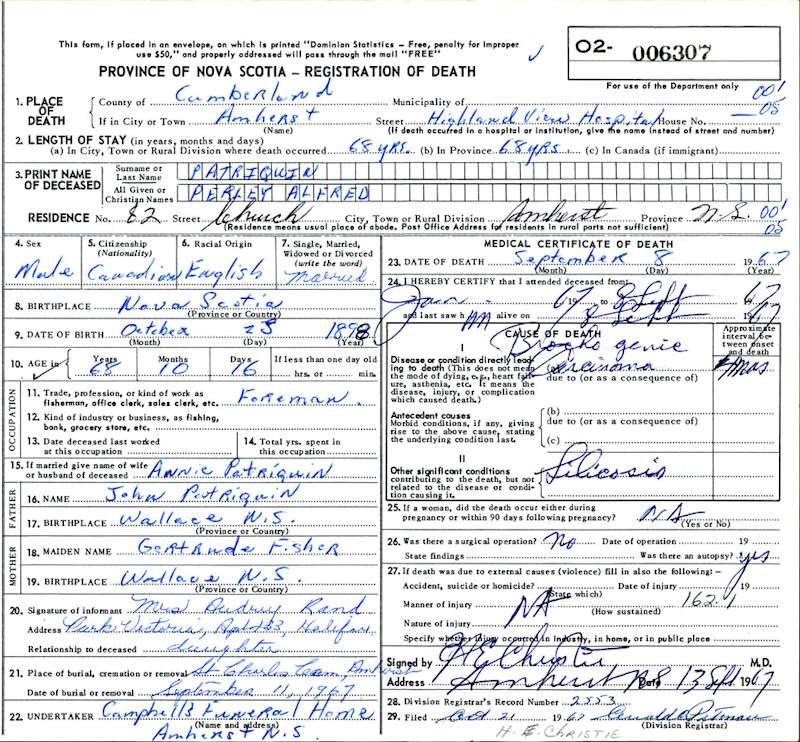 This form, if placed in an envelope, on which is printed "Dominion Statistics – Free, penalty for improper
use $50," and properly addressed will pass through the mail "FREE"
O2- 006307
For use of the Department only
PROVINCE OF NOVA SCOTIA – REGISTRATION OF DEATH
001
05
1. PLACE OF DEATH
County of Cumberland Municipality of
If in City or Town Amherst Street Highland View Hospital House No.
(Name) (If death occurred in a hospital or institution, give the name instead of street and number)
2. LENGTH OF STAY (in years, months and days)
(a) In City, Town or Rural Division where death occurred 68 yrs. (b) In Province 68 yrs. (c) In Canada (if immigrant)
3. PRINT NAME OF DECEASED
Surname or Last Name PATRIQUIN
All Given or Christian Names PERLEY ALFRED
RESIDENCE No. 82 Street Church City, Town or Rural Division Amherst Province N.S. 001
05
(Residence means usual place of abode. Post Office Address for residents in rural parts not sufficient)
4. Sex
Male
5. Citizenship
(Nationality)
Canadian
6. Racial Origin
English
7. Single, Married,
Widowed or Divorced
(write the word)
Married
8. BIRTHPLACE Nova Scotia
(Province or Country)
9. DATE OF BIRTH October 23 1898
(Month) (Day) (Year)
10. AGE in
Years Months Days If less than one day old
68 10 16 hrs. or min.
OCCUPATION
11. Trade, profession, or kind of work as
fisherman, office clerk, sales clerk, etc. Foreman.
12. Kind of industry or business, as fishing,
bank, grocery store, etc.
13. Date deceased last worked
at this occupation
14. Total yrs. spent in
this occupation
15. If married give name of wife
or husband of deceased Annie Patriquin
FATHER
16. NAME John Patriquin
17. BIRTHPLACE Wallace N.S.
(Province or Country)
MOTHER
18. MAIDEN NAME Gertrude Fisher
19. BIRTHPLACE Wallace N.S.
(Province or Country)
20. Signature of informant Mrs Audrey Rand
Address Park Victoria, Halifax
Relationship to deceased daughter
21. Place of burial, cremation or removal St Charles Cem, Amherst
Date of burial or removal September 11, 1967
22. UNDERTAKER Campbell's Funeral Home
(Name and address)
Amherst N.S.
MEDICAL CERTIFICATE OF DEATH
23. DATE OF DEATH September 8 1967
(Month) (Day) (Year)
24. I HEREBY CERTIFY that I attended deceased from:
Jan. 1967 to 8 Sept 1967
and last saw him alive on 8 Sept 1967
CAUSE OF DEATH
Approximate
interval be-
tween onset
and death
I
Disease or condition directly lead-
ing to death (This does not mean
the mode of dying, e.g., heart fail-
ure, asthenia, etc. It means the
disease, injury, or complication
which caused death.)
genic
Carcinoma
mos
due to (or as a consequence of)
Antecedent causes
Morbid conditions, if any, giving
rise to the above cause, stating
the underlying condition last.
(b)
due to (or as a consequence of)
(c)
II
Other significant conditions
contributing to the death, but not
related to the disease or condi-
tion causing it.
Silicosis
25. If a woman, did the death occur either during
pregnancy or within 90 days following pregnancy? NA
(Yes or No)
26. Was there a surgical operation? No Date of operation 19
State findings Was there an autopsy? Yes
27. If death was due to external causes (violence) fill in also the following:–
Accident, suicide or homicide? Date of injury 19
(State which)
Manner of injury NA 162.1
(How sustained)
Nature of injury
Specify whether injury occurred in industry, in home, or in public place
Signed by H E Christie M.D.
Address Amherst NS Date 13 Sept 1967
28. Division Registrar's Record Number 2553
29. Filed Oct 21 1967
(Division Registrar)
H. E. CHRISTIE